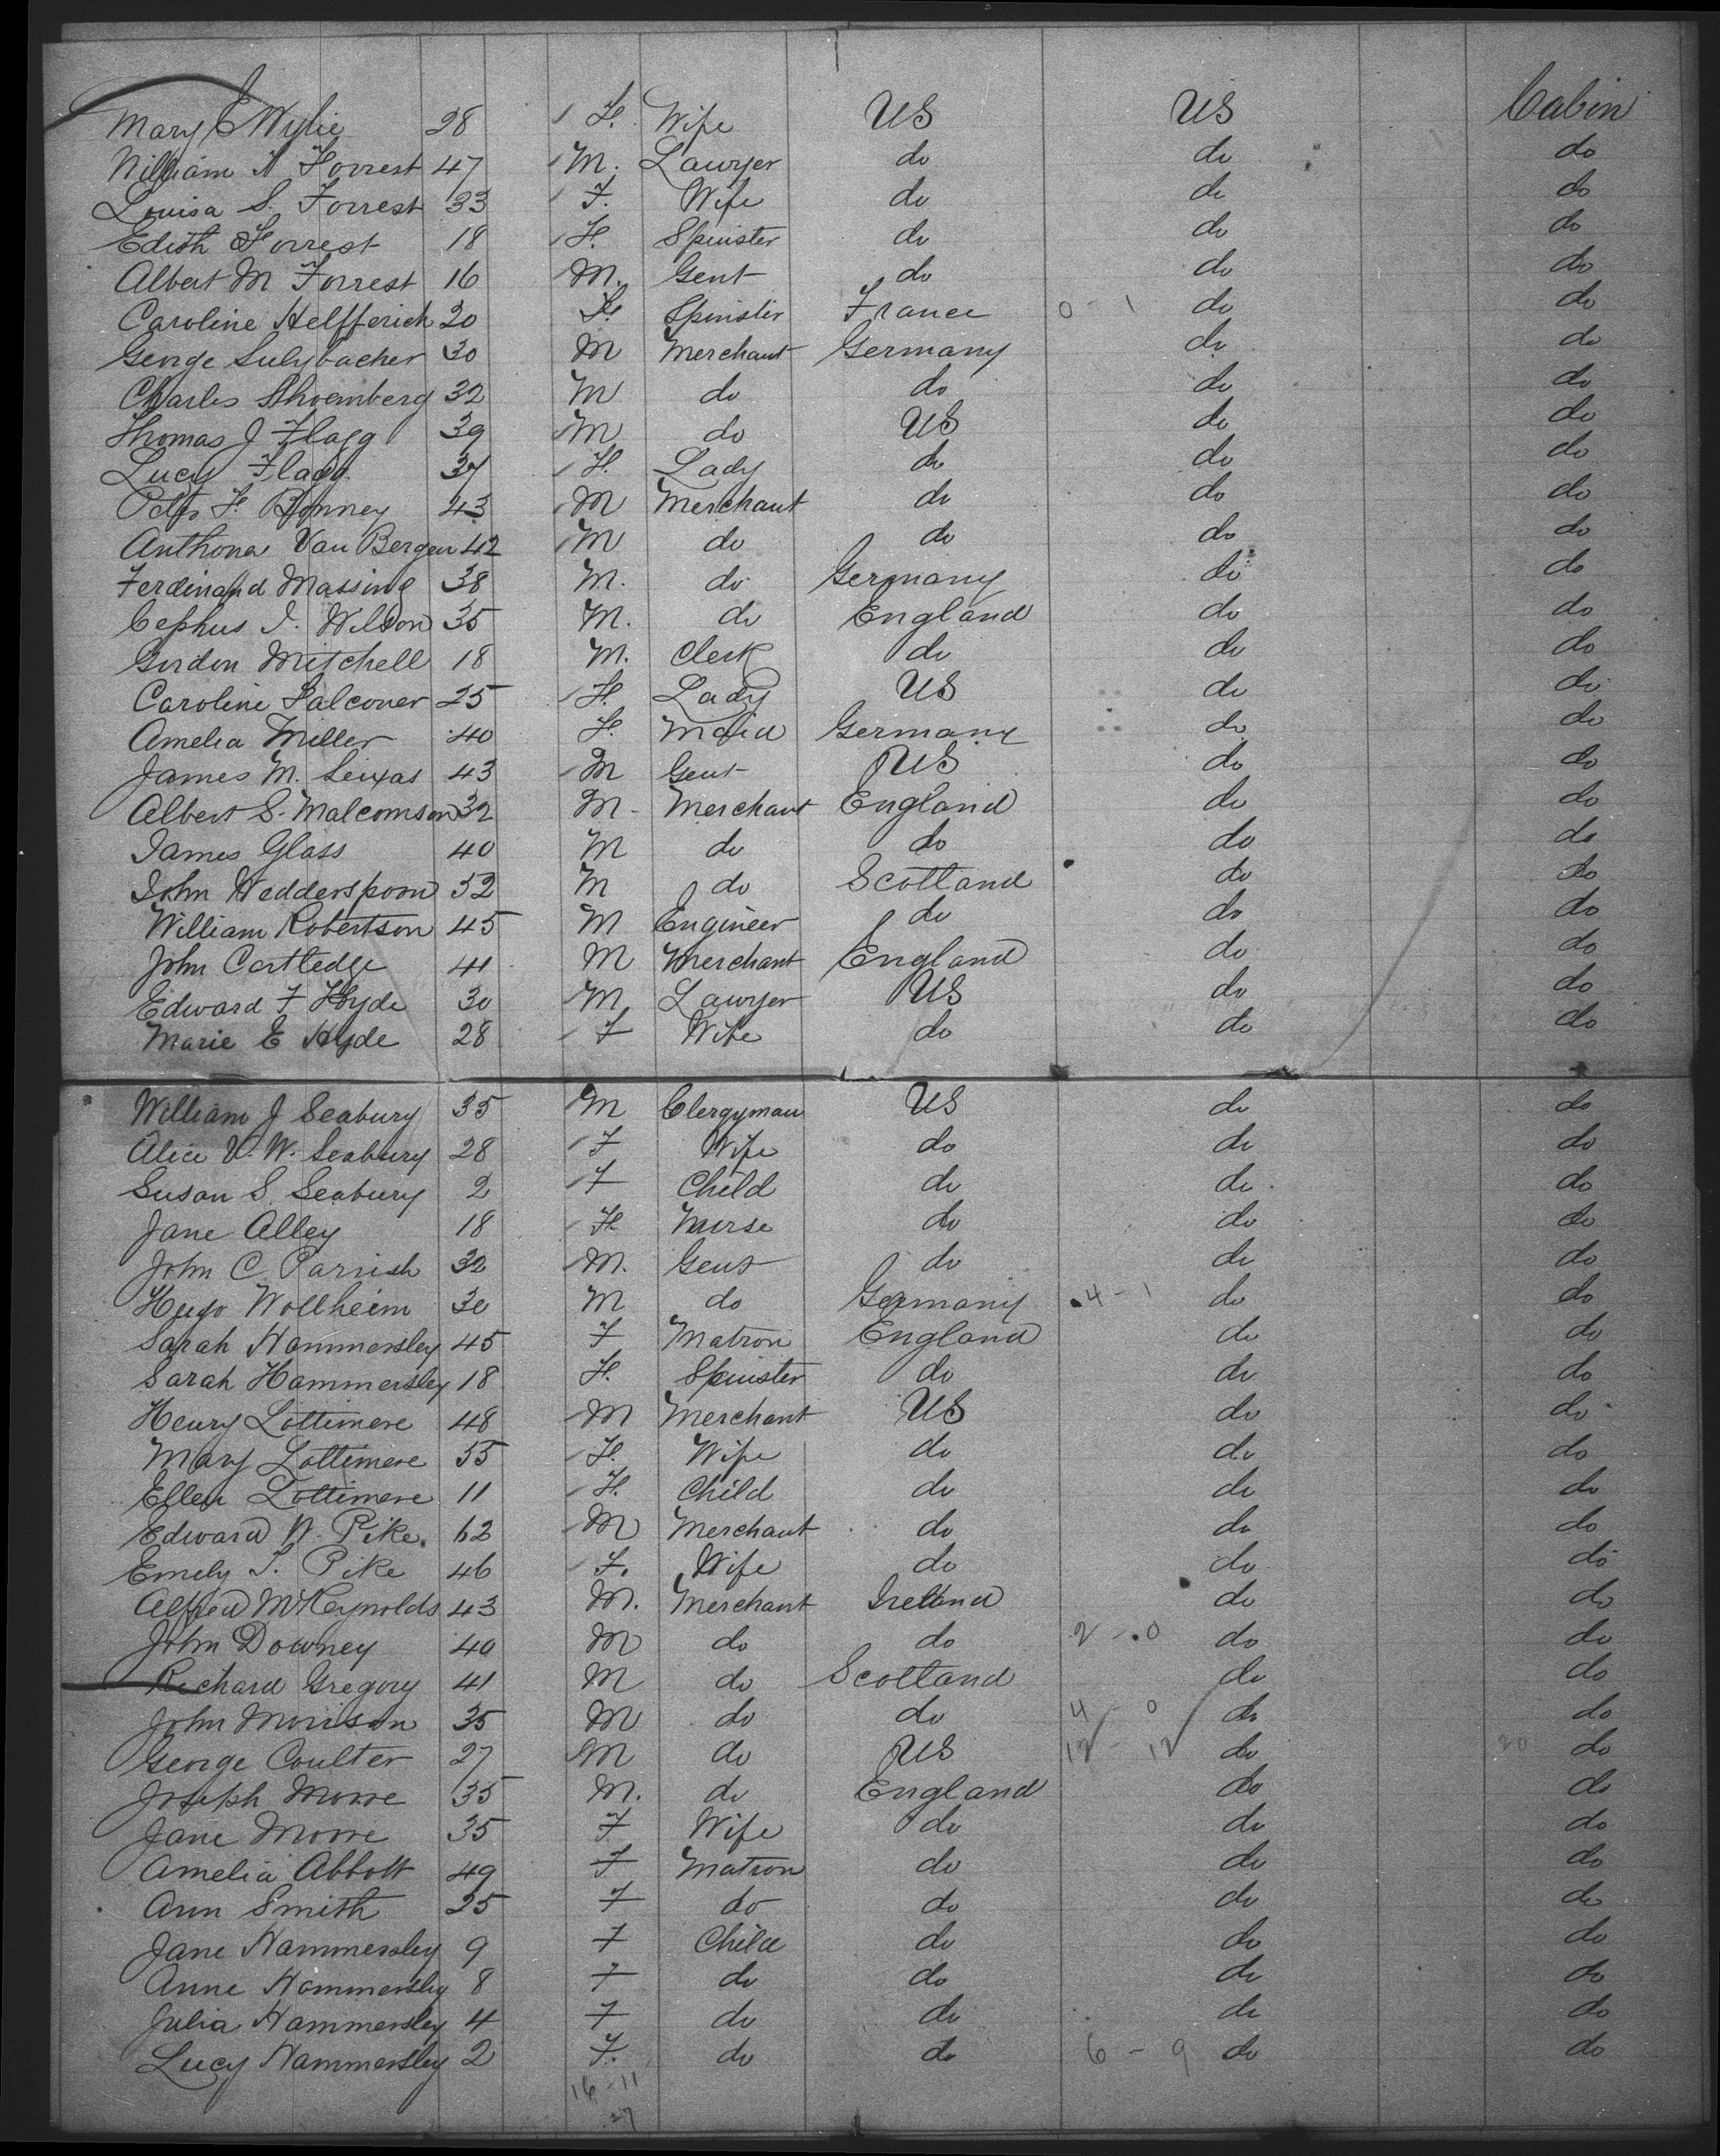 Mary E Wylie 28 F. Wife US US Cabin
William A Forrest 47 M. Lawyer do do do
Louisa S. Forrest 33 F. Wife do do do
Edith Forrest 18 F. Spinster do do do
Albert M Forrest 16 M. Gent do do do
Caroline Helfferich 30 F. Spinster France 0 - 1 do do
George Sulybacher 30 M Merchant Germany do do
Charles Shoemberg 32 M do do do do
Thomas J Flagg 39 M do US do do
Lucy Flagg 37 F. Lady do do do
F. Bonney 43 M Merchant do do do
Anthona Van Bergen 42 M do do do do
Ferdinand Massing 38 M. do Germany do do
Cephus I. Wilson 35 M. do England do do
Gordon Mitchell 18 M. Clerk do do do
Caroline Falconer 25 F. Lady US do do
Amelia Miller 40 F. Maid Germany do do
James M. Seixas 43 M Gent US do do
Albert S. Malcomson 32 M Merchant England do do
James Glass 40 M do do do do
John Wedderspoon 52 M do Scotland do do
William Robertson 45 M Engineer do do do
John Cartledge 41 M Merchant England do do
Edward F Hyde 30 M. Lawyer US do do
Marie E Hyde 28 F Wife do do do
William J Seabury 35 M Clergyman US do do
Alice V. W. Seabury 28 F Wife do do do
Susan S. Seabury 2 F Child do do do
Jane Alley 18 F Nurse do do do
John C Parrish 32 M. Gent do do do
Hugo Wollheim 30 M do Germany 4 - 1 do do
Sarah Hammersley 45 F Matron England do do
Sarah Hammersley 18 F. Spinster do do do
Henry Lottimere 48 M Merchant US do do
Mary Lottimere 35 F. Wife do do do
Ellen Lottimere 11 F. Child do do do
Edward W. Pike. 62 M Merchant do do do
Emely S. Pike 46 F. Wife do do do
Alfred McReynolds 43 M. Merchant Ireland do do
John Downey 40 M do do 2 - 0 do do
Richard Gregory 41 M do Scotland do do
John Morison 35 M do do 4 - 0 do do
George Coulter 27 M do US 12 - 12 do 20 do
Joseph Morre 35 M. do England do do
Jane Morre 35 F Wife do do do
Amelia Abbott 49 F Matron do do do
Ann Smith 25 F do do do do
Jane Hammersley 9 F Child do do do
Anne Hammersley 8 F do do do do
Julia Hammersley 4 F do do do do
Lucy Hammersley 2 F. do do 6 - 9 do do
16 - 11
27